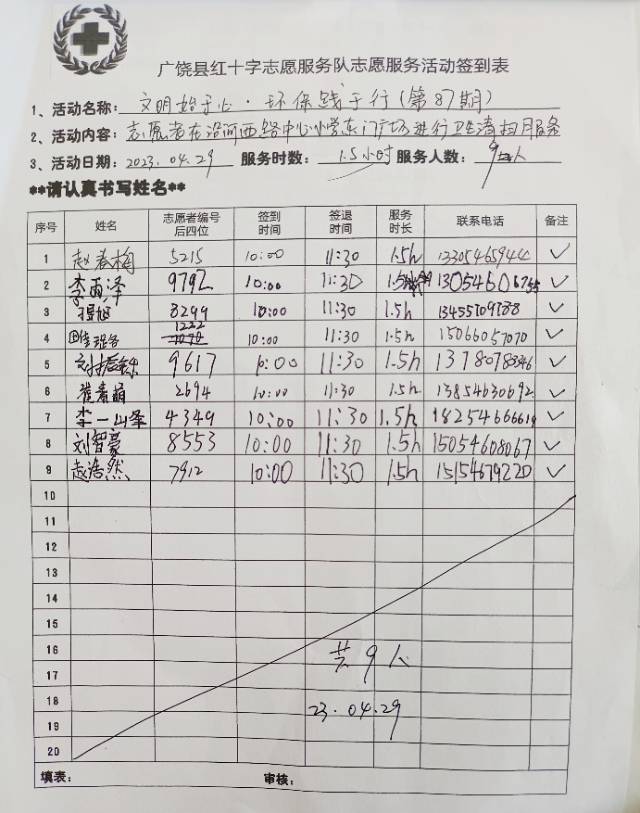 广饶县红十字志愿服务队志愿服务活动签到表
1、活动名称：文明始于心·环保践于行（第87期）
2、活动内容：志愿者在沿河西路中心小学东门广场进行卫生清扫服务
3、活动日期：2023.04.29 服务时数：1.5小时 服务人数：9人
**请认真书写姓名**
序号 姓名 志愿者编号后四位 签到时间 签退时间 服务时长 联系电话 备注
1 赵春梅 5215 10:00 11:30 1.5h 13305465944 ✓
2 李雨泽 9792 10:00 11:30 1.5h 13054606755 ✓
3 8299 10:00 11:30 1.5h 13455109788 ✓
4 1222 10:00 11:30 1.5h 15066057070 ✓
5 9617 10:00 11:30 1.5h ✓
6 崔春萌 2694 10:00 11:30 1.5h 13854630692 ✓
7 李一山泽 4349 10:00 11:30 1.5h ✓
8 刘智豪 8553 10:00 11:30 1.5h 15054608067 ✓
9 赵浩然 7912 10:00 11:30 1.5h 15154679220 ✓
10
11
12
13
14
15
16 共9人
17
18 23.04.29
19
20
填表： 审核：